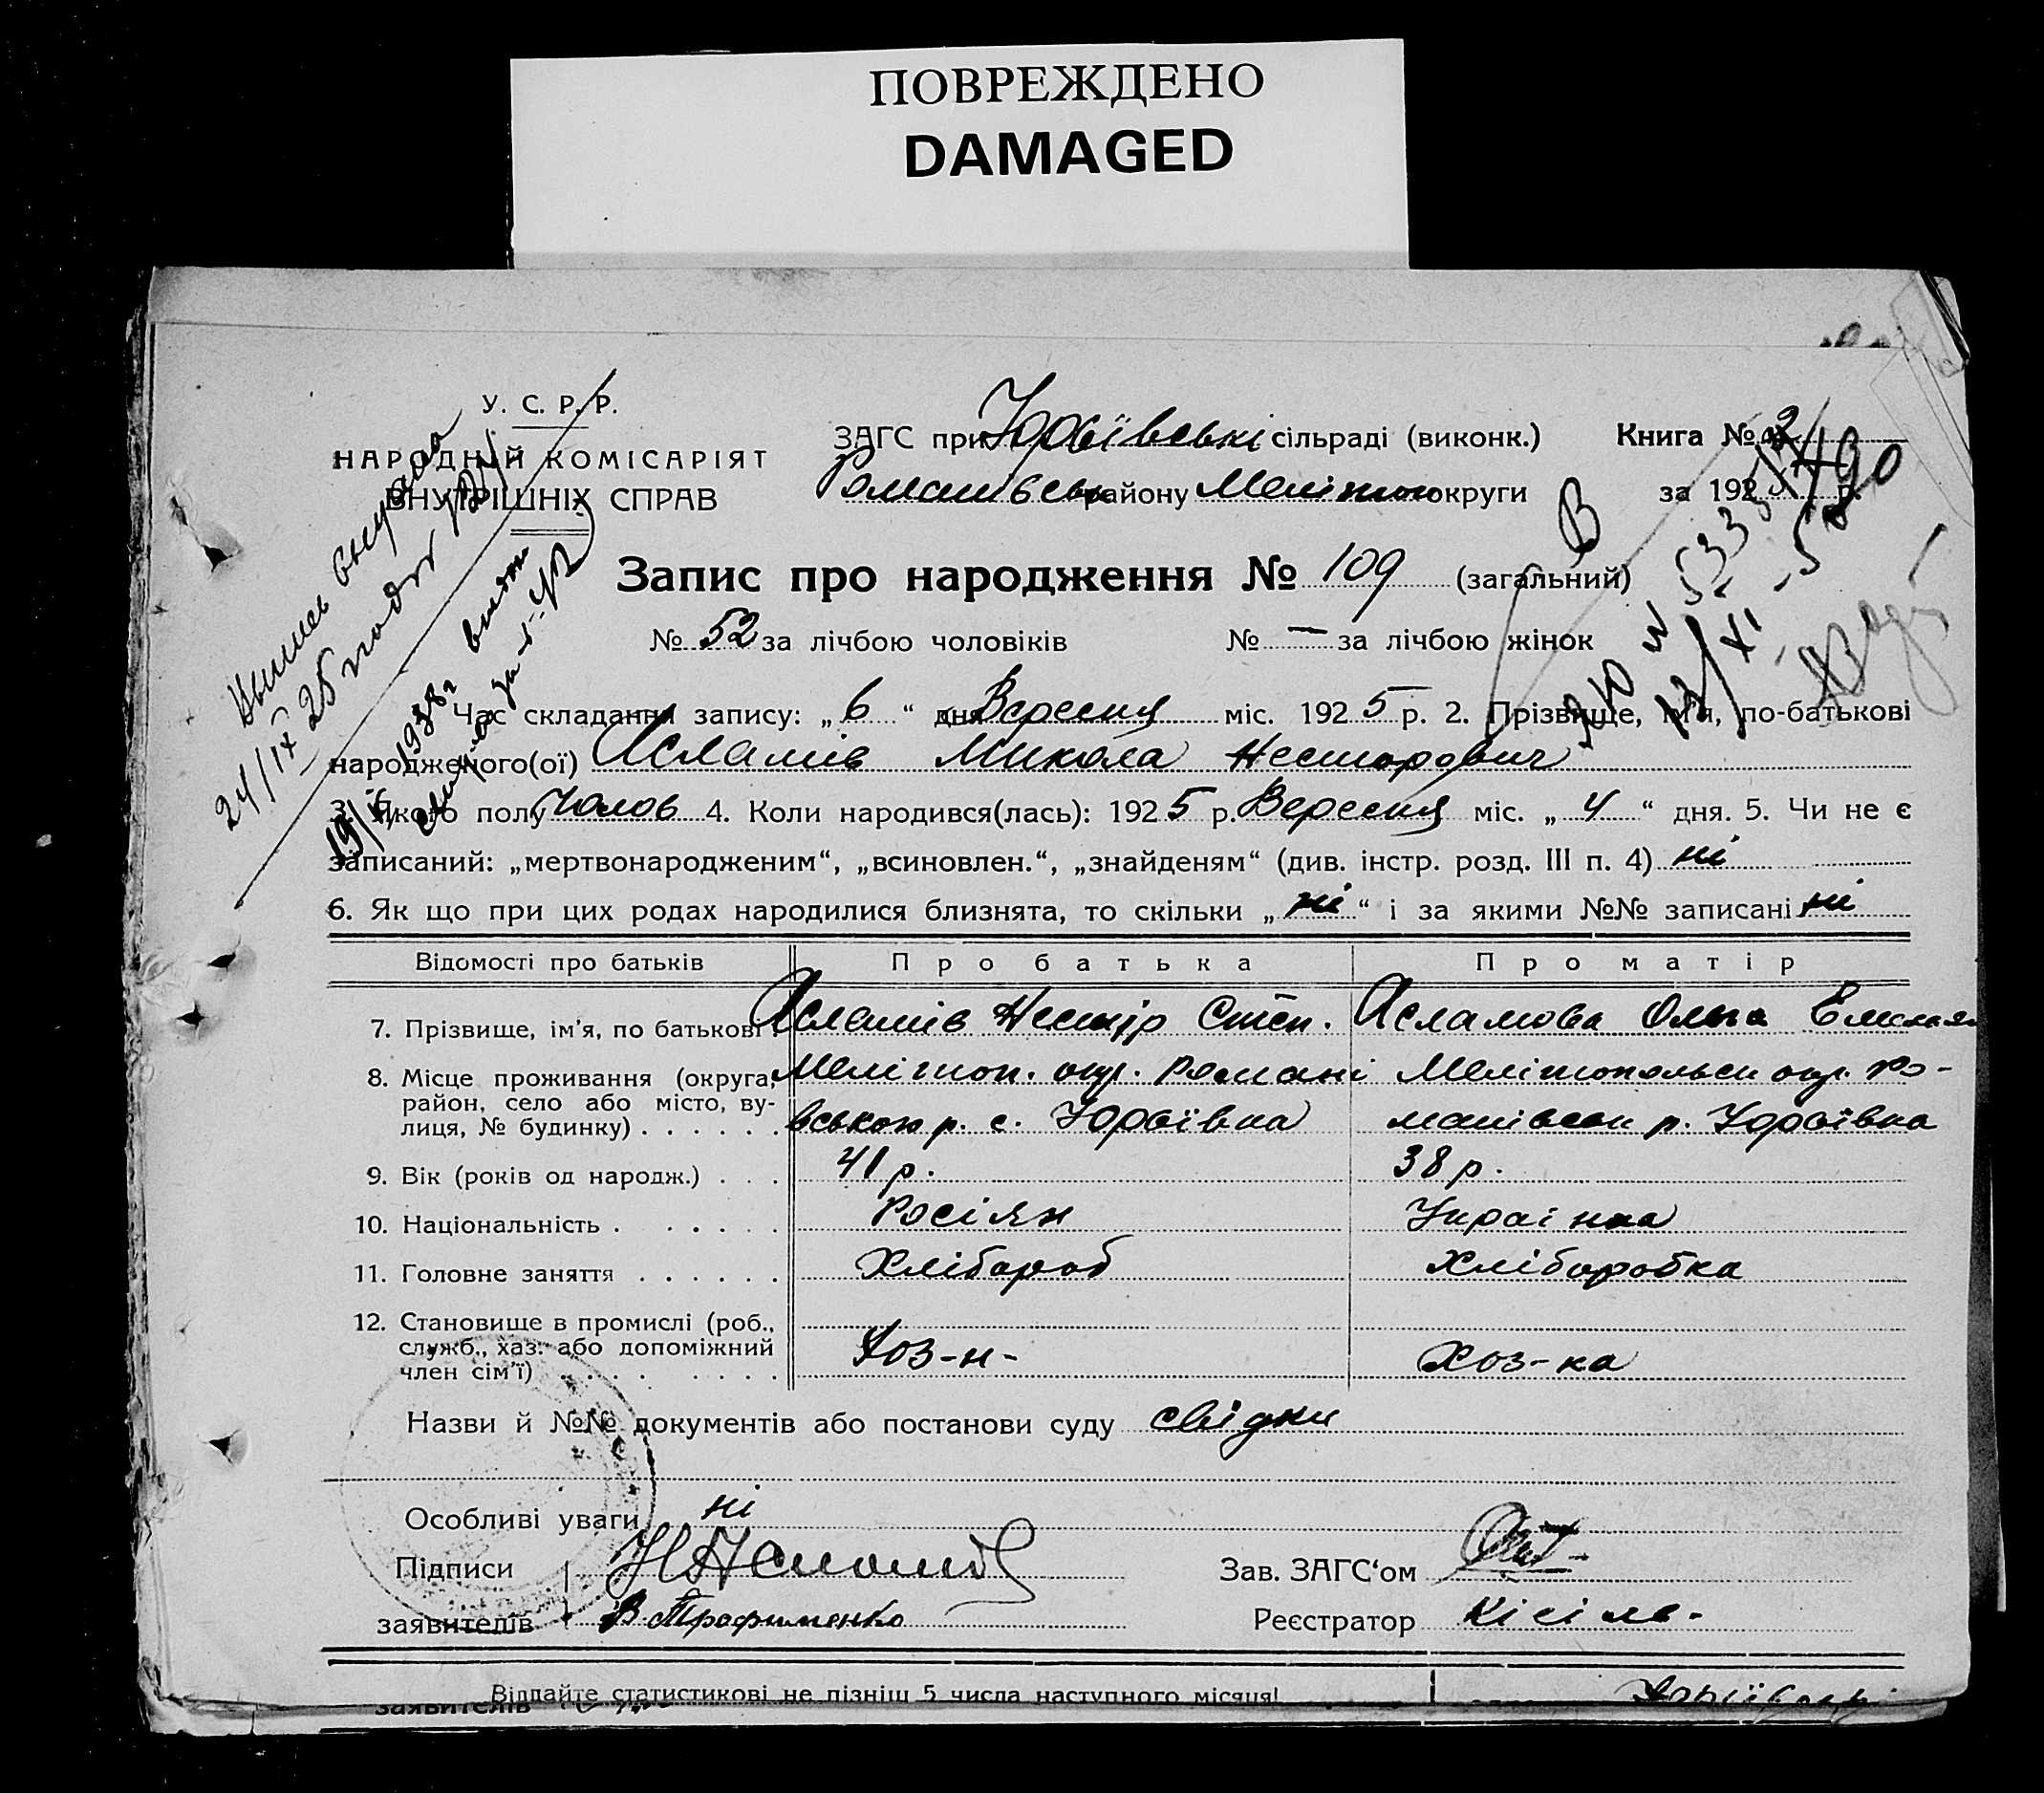 ПОВРЕЖДЕНО
DAMAGED
У. С. Р. Р.
НАРОДНІЙ КОМІСАРІЯТ
ВНУТРІШНІХ СПРАВ
ЗАГС при Юрʼївські сільраді (виконк.)
Романівськ району Мелітоп округи
Книга № 2
за 1925 р.
Запис про народження № 109 (загальний)
№ 52 за лічбою чоловіків № — за лічбою жінок
Час складання запису: „6“ дня Вересня міс. 1925 р. 2. Прізвище, ім'я, по-батькові
народженого(ої) Асламів Микола Несторович
3. Якого полу Чолов 4. Коли народився(лась): 1925 р. Вересня міс. „4“ дня. 5. Чи не є
записаний: „мертвонародженим“, „всиновлен.“, „знайденям“ (див. інстр. розд. III п. 4) ні
6. Як що при цих родах народилися близнята, то скільки „ні“ і за якими №№ записані ні
Відомості про батьків Про батька Про матір
7. Прізвище, ім'я, по батькові Асламів Нестір Степ. Асламова Ольга
8. Місце проживання (округа, район, село або місто, ву-лиця, № будинку) . . . . . . Мелітоп. окр. Романі вською р. с. Юрʼївка Мелітопольськ окр. Ро-манівськ р. Юрʼївка
9. Вік (років од народж.) . . . 41 р. 38 р.
10. Національність . . . . . . Росіян Українка
11. Головне заняття . . . . . . Хлібороб Хліборобка
12. Становище в промислі (роб., служб., хаз. або допоміжний член сім'ї) . . . . . . . . Хоз-н- Хоз-ка
Назви й №№ документів або постанови суду свідки
Особливі уваги ні
Підписи Н Асламов Зав. ЗАГС‘ом
заявителів В Трофименко Реєстратор Кісіль-
Віддайте статистикові не пізніш 5 числа наступного місяця!
заявителів